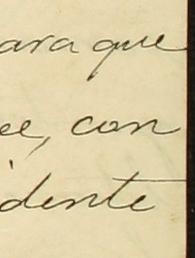 ara que
ee, con
idente